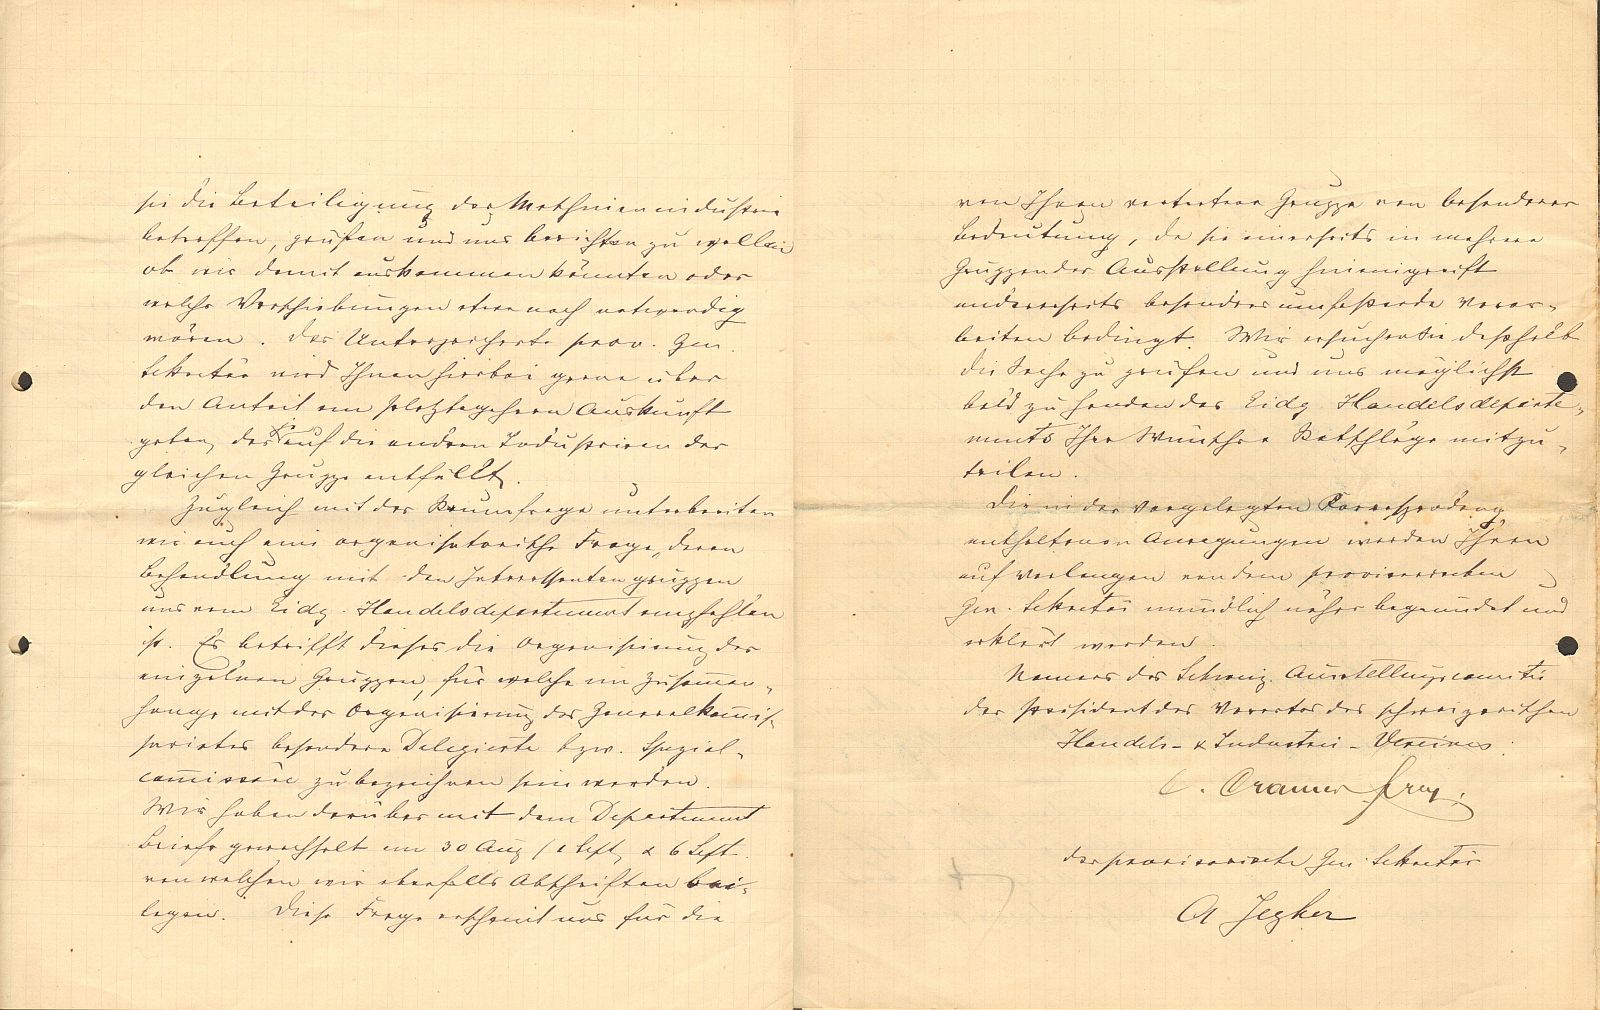 sie die Beteiligung der Maschinenindustrie
betreffen, prüfen und uns berichten zu wollen
ob wir damit auskommen könnten oder
welche Verschiebungen etwa noch notwendig
wären. Der Unterzeichnete prov. Gen.
Sekretär wird Ihnen hierbei gerne über
den Anteil am Platzbegehren Auskunft
geben, der auf die andern Industrieen der
gleichen Gruppe entfällt.
Zugleich mit der Raumfrage unterbreiten
wir auch eine organisatorische Frage, deren
Behandlung mit den Interessentengruppen
uns vom Eidg. Handelsdepartement empfohlen
ist. Es betrifft dieses die Organisierung der
einzelnen Gruppen, für welche im Zusamen-
hange mit der Organisierung des Generalkomis-
sariates besondere Delegierte bzw. Spezial-
comissäre zu bezeichnen sein werden.
Wir haben darüber mit dem Departement
Briefe gewechselt am 30 Aug / 1 Sept, & 6 Sept.
von welchen wir ebenfalls Abschriften bei-
legen. Diese Frage erscheint uns für die
von Ihnen vertretene Gruppe von besonderer
Bedeutung, da sie einerseits in mehrere
Gruppen der Ausstellung hineingreift
andererseits besonders umfassende Vorar-
beiten bedingt. Wir ersuchen Sie deshalb
die Sache zu prüfen und uns möglichst
bald zu Handen des Eidg Handelsdeparte-
ments Ihre Wünsche Ratschläge mitzu-
teilen.
Die in der vorgelegten Correspondenz
enthaltenen Anregungen werden Ihnen
auf Verlangen von dem provisorischen
Gen. Sekretär mündlich näher begründet und
erklärt werden.
Namens des Schweiz. Ausstellungscomités
der Präsident des Vorortes des schweizerischen
Handels- & Industrie-Vereines:
C. Cramer Frey.
der provisorische Gen. Sekretär
A Jegher